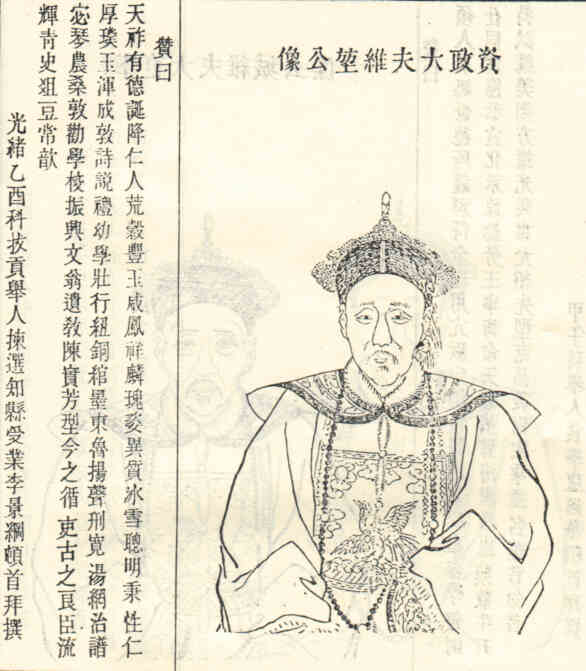 資政大夫維堃公像
贊曰
天祚有德誕降仁人荒穀豐玉威鳳祥麟瑰姿異質冰雪聰明秉性仁
厚璞玉渾成敦詩說禮幼學壯行紐銅綰墨東魯揚聲刑寬湯網治譜
宓琴農桑敦勸學校振興文翁遺教陳實芳型今之循吏古之良臣流
輝青史俎豆常歆
光緒乙酉科拔貢舉人揀選知縣受業李景綱頓首拜撰